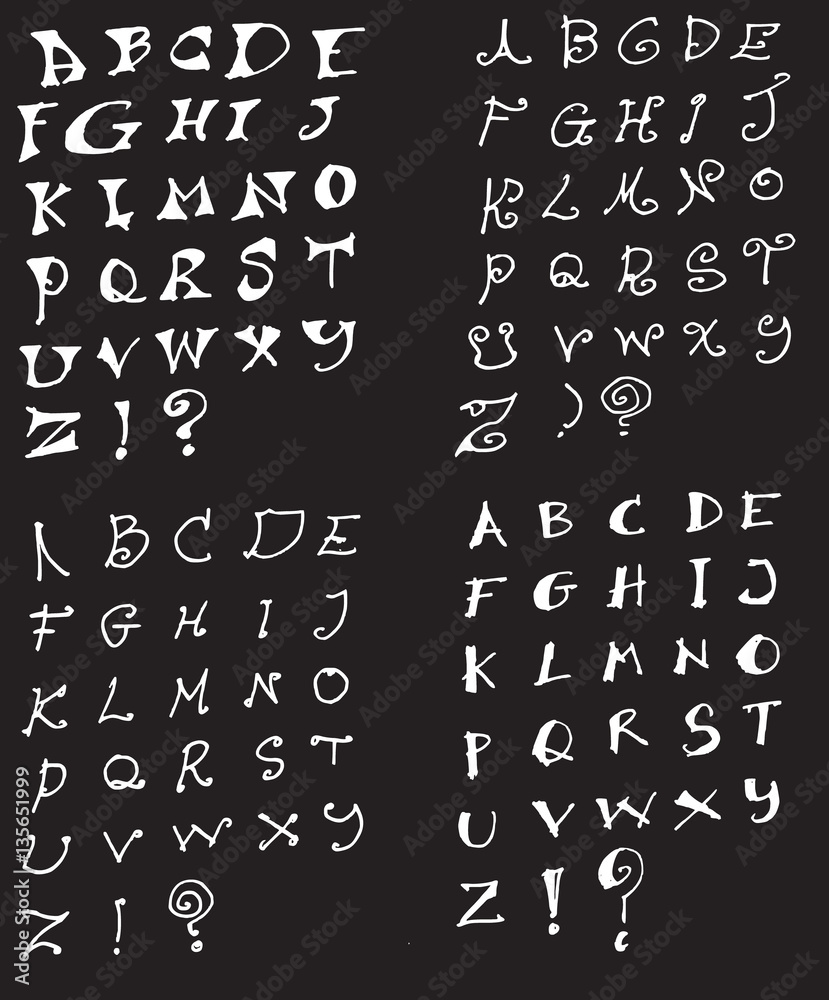 A B C D E
F G H I J
K L M N O
P Q R S T
U V W X Y
Z ! ?
A B C D E
F G H I J
K L M N O
P Q R S T
U V W X Y
Z ! ?
A B C D E
F G H I J
K L M N O
P Q R S T
U V W X Y
Z ! ?
A B C D E
F G H I J
K L M N O
P Q R S T
U V W X Y
Z ! ?
Adobe Stock | #135651999